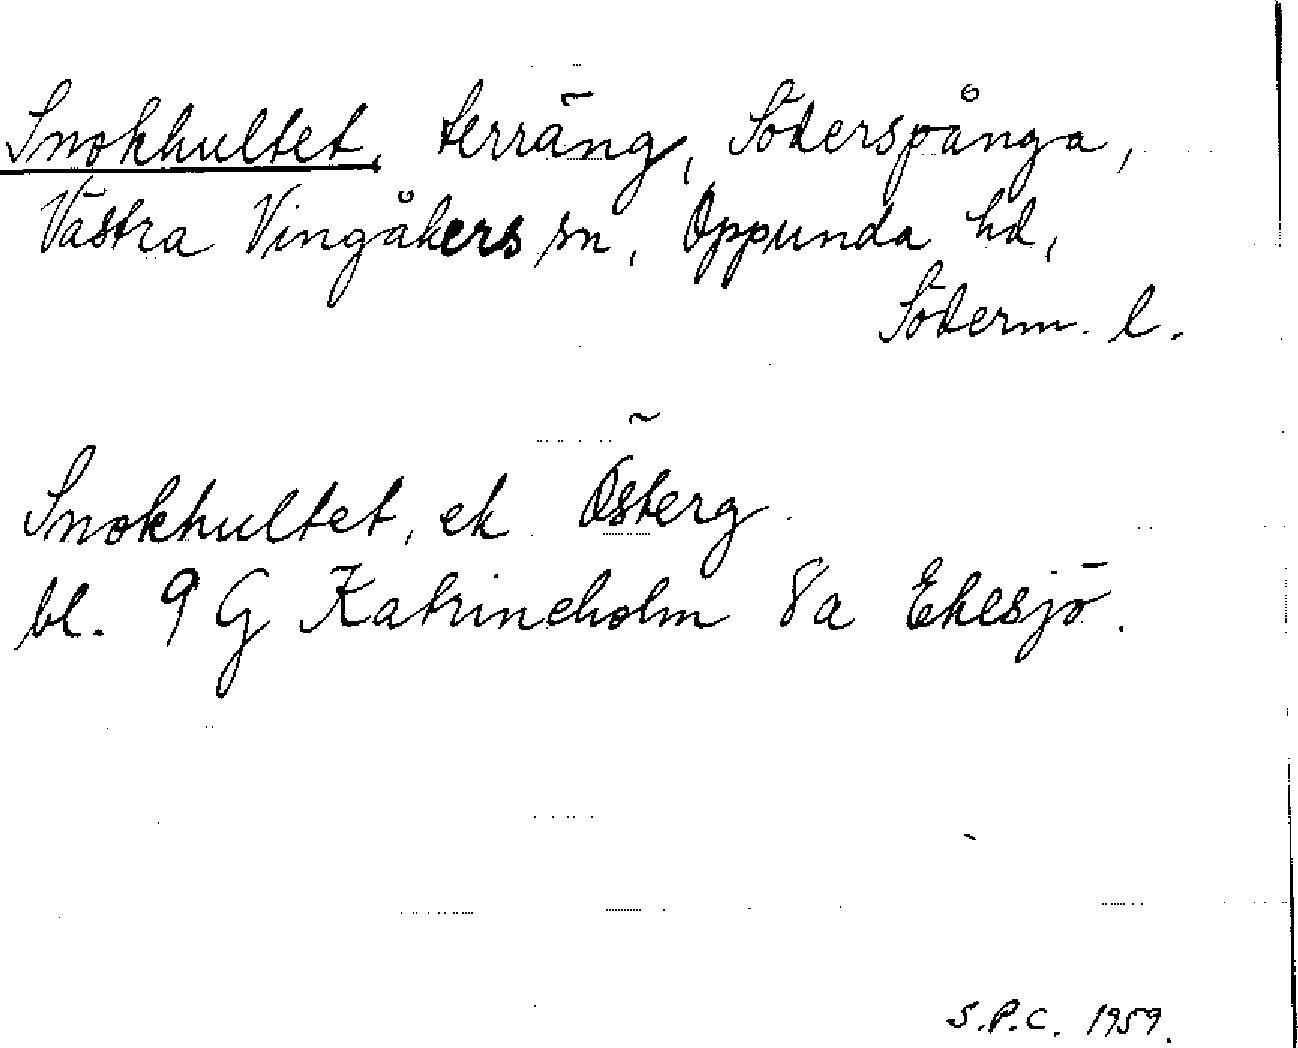 Snokhultet, terräng, Söderspånga,
Västra Vingåkers sn, Oppunda hd,
Söderm. l.
Snokhultet, ek Österg.
bl. 9 G Katrineholm 8a Ekesjö.
S.P.C. 1959.